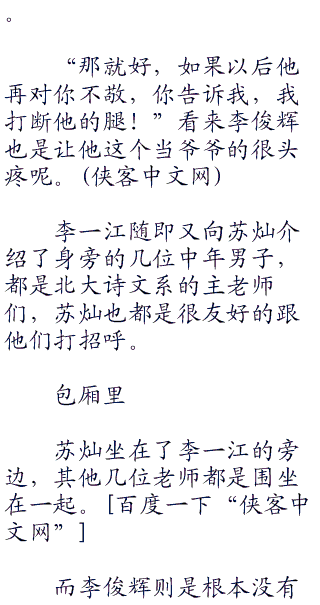 。
“那就好，如果以后他
再对你不敬，你告诉我，我
打断他的腿！”看来李俊辉
也是让他这个当爷爷的很头
疼呢。(侠客中文网)
李一江随即又向苏灿介
绍了身旁的几位中年男子，
都是北大诗文系的主老师
们，苏灿也都是很友好的跟
他们打招呼。
包厢里
苏灿坐在了李一江的旁
边，其他几位老师都是围坐
在一起。[百度一下“侠客中
文网”]
而李俊辉则是根本没有